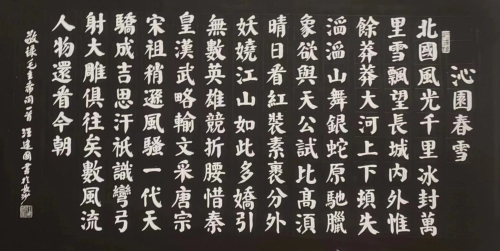 沁園春雪
北國風光千里冰封萬
里雪飄望長城內外惟
餘莽莽大河上下頓失
滔滔山舞銀蛇原馳臘
象欲與天公試比高須
晴日看紅裝素裹分外
妖嬈江山如此多嬌引
無數英雄競折腰惜秦
皇漢武略輸文采唐宗
宋祖稍遜風騷一代天
驕成吉思汗祇識彎弓
射大雕俱往矣數風流
人物還看今朝
敬錄毛主席詞一首 建國書於長沙